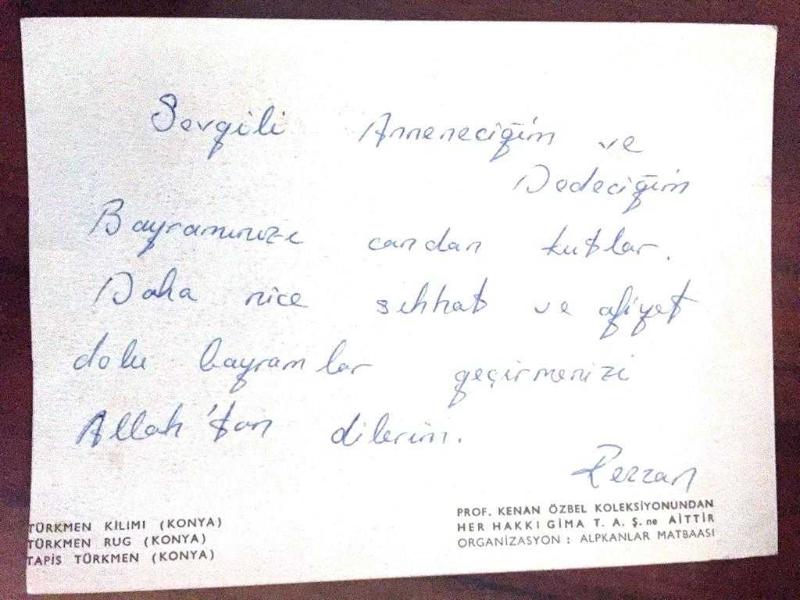 Sevgili Anneneciğim ve
Dedeciğim
Bayramınızı candan kutlar.
Daha nice sıhhat ve afiyet
dolu bayramlar geçirmenizi
Allah'tan dilerim.
Rezzan
TÜRKMEN KİLİMİ (KONYA)
TÜRKMEN RUG (KONYA)
TAPİS TÜRKMEN (KONYA)
PROF. KENAN ÖZBEL KOLEKSİYONUNDAN
HER HAKKI GİMA T. A. Ş. ne AİTTİR
ORGANİZASYON : ALPKANLAR MATBAASI